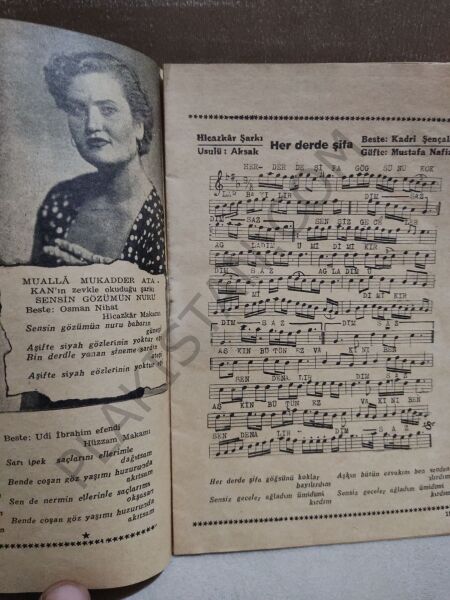 MUALLÂ MUKADDER ATA
KAN'ın zevkle okuduğu şarkı
SENSİN GÖZÜMÜN NURU
Beste: Osman Nihat
Hicazkâr Makamı
Sensin gözümün nuru baharın
güneşi
Aşifte siyah gözlerinin yoktur
Bin derdle yanan sineme sardın
Aşifte siyah gözlerinin yoktur
Beste: Udi İbrahim efendi
Hüzzam Makamı
Sarı ipek saçlarını ellerimle
dağıtsam
Bende coşan göz yaşımı huzurunda
akıtsam
Sen de nermin ellerinle saçlarımı
okşasan
Bende coşan göz yaşımı huzurunda
akıtsam
Hicazkâr Şarkı
Usulü: Aksak
Her derde şifa
Beste: Kadri Şençala
Güfte: Mustafa Nafiz
HER- DER DE Şİ FA GÖĞ SÜ NÜ KOK
LAR BA YI LIR DIM SAZ
SAZ SEN SİZ GE CE
AĞ LADIM Ü Mİ Dİ Mİ KIR
DIM SAZ AĞLADIM Ü
Mİ Dİ Mİ KIR
DIM SAZ DIM SAZ
AŞ KIN BÜ TÜN EZ VA KI NI BEN
SEN DENA LIR DIM SAZ
AŞ KIN BÜ TÜN EZ VA KI NI BEN
SEN DENA LIR- DIM - SAZ
Her derde şifa göğsünü koklar
bayılırdım
Sensiz geceler ağladım ümidimi
kırdım
Aşkın bütün ezvakını ben senden
alırdım
Sensiz geceler ağladım ümidimi
kırdım
PLAKISTAN.COM